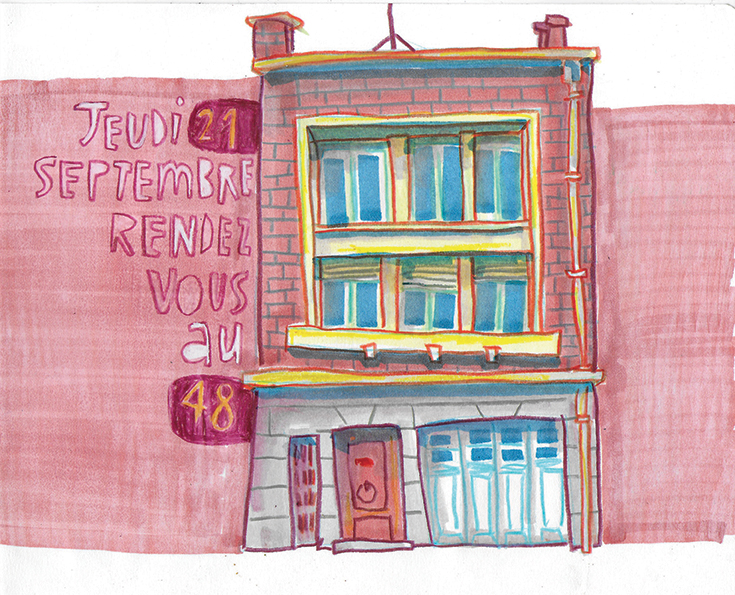 JEUDi 21
SEPTEMBRE
RENDEZ
VOUS
au
48